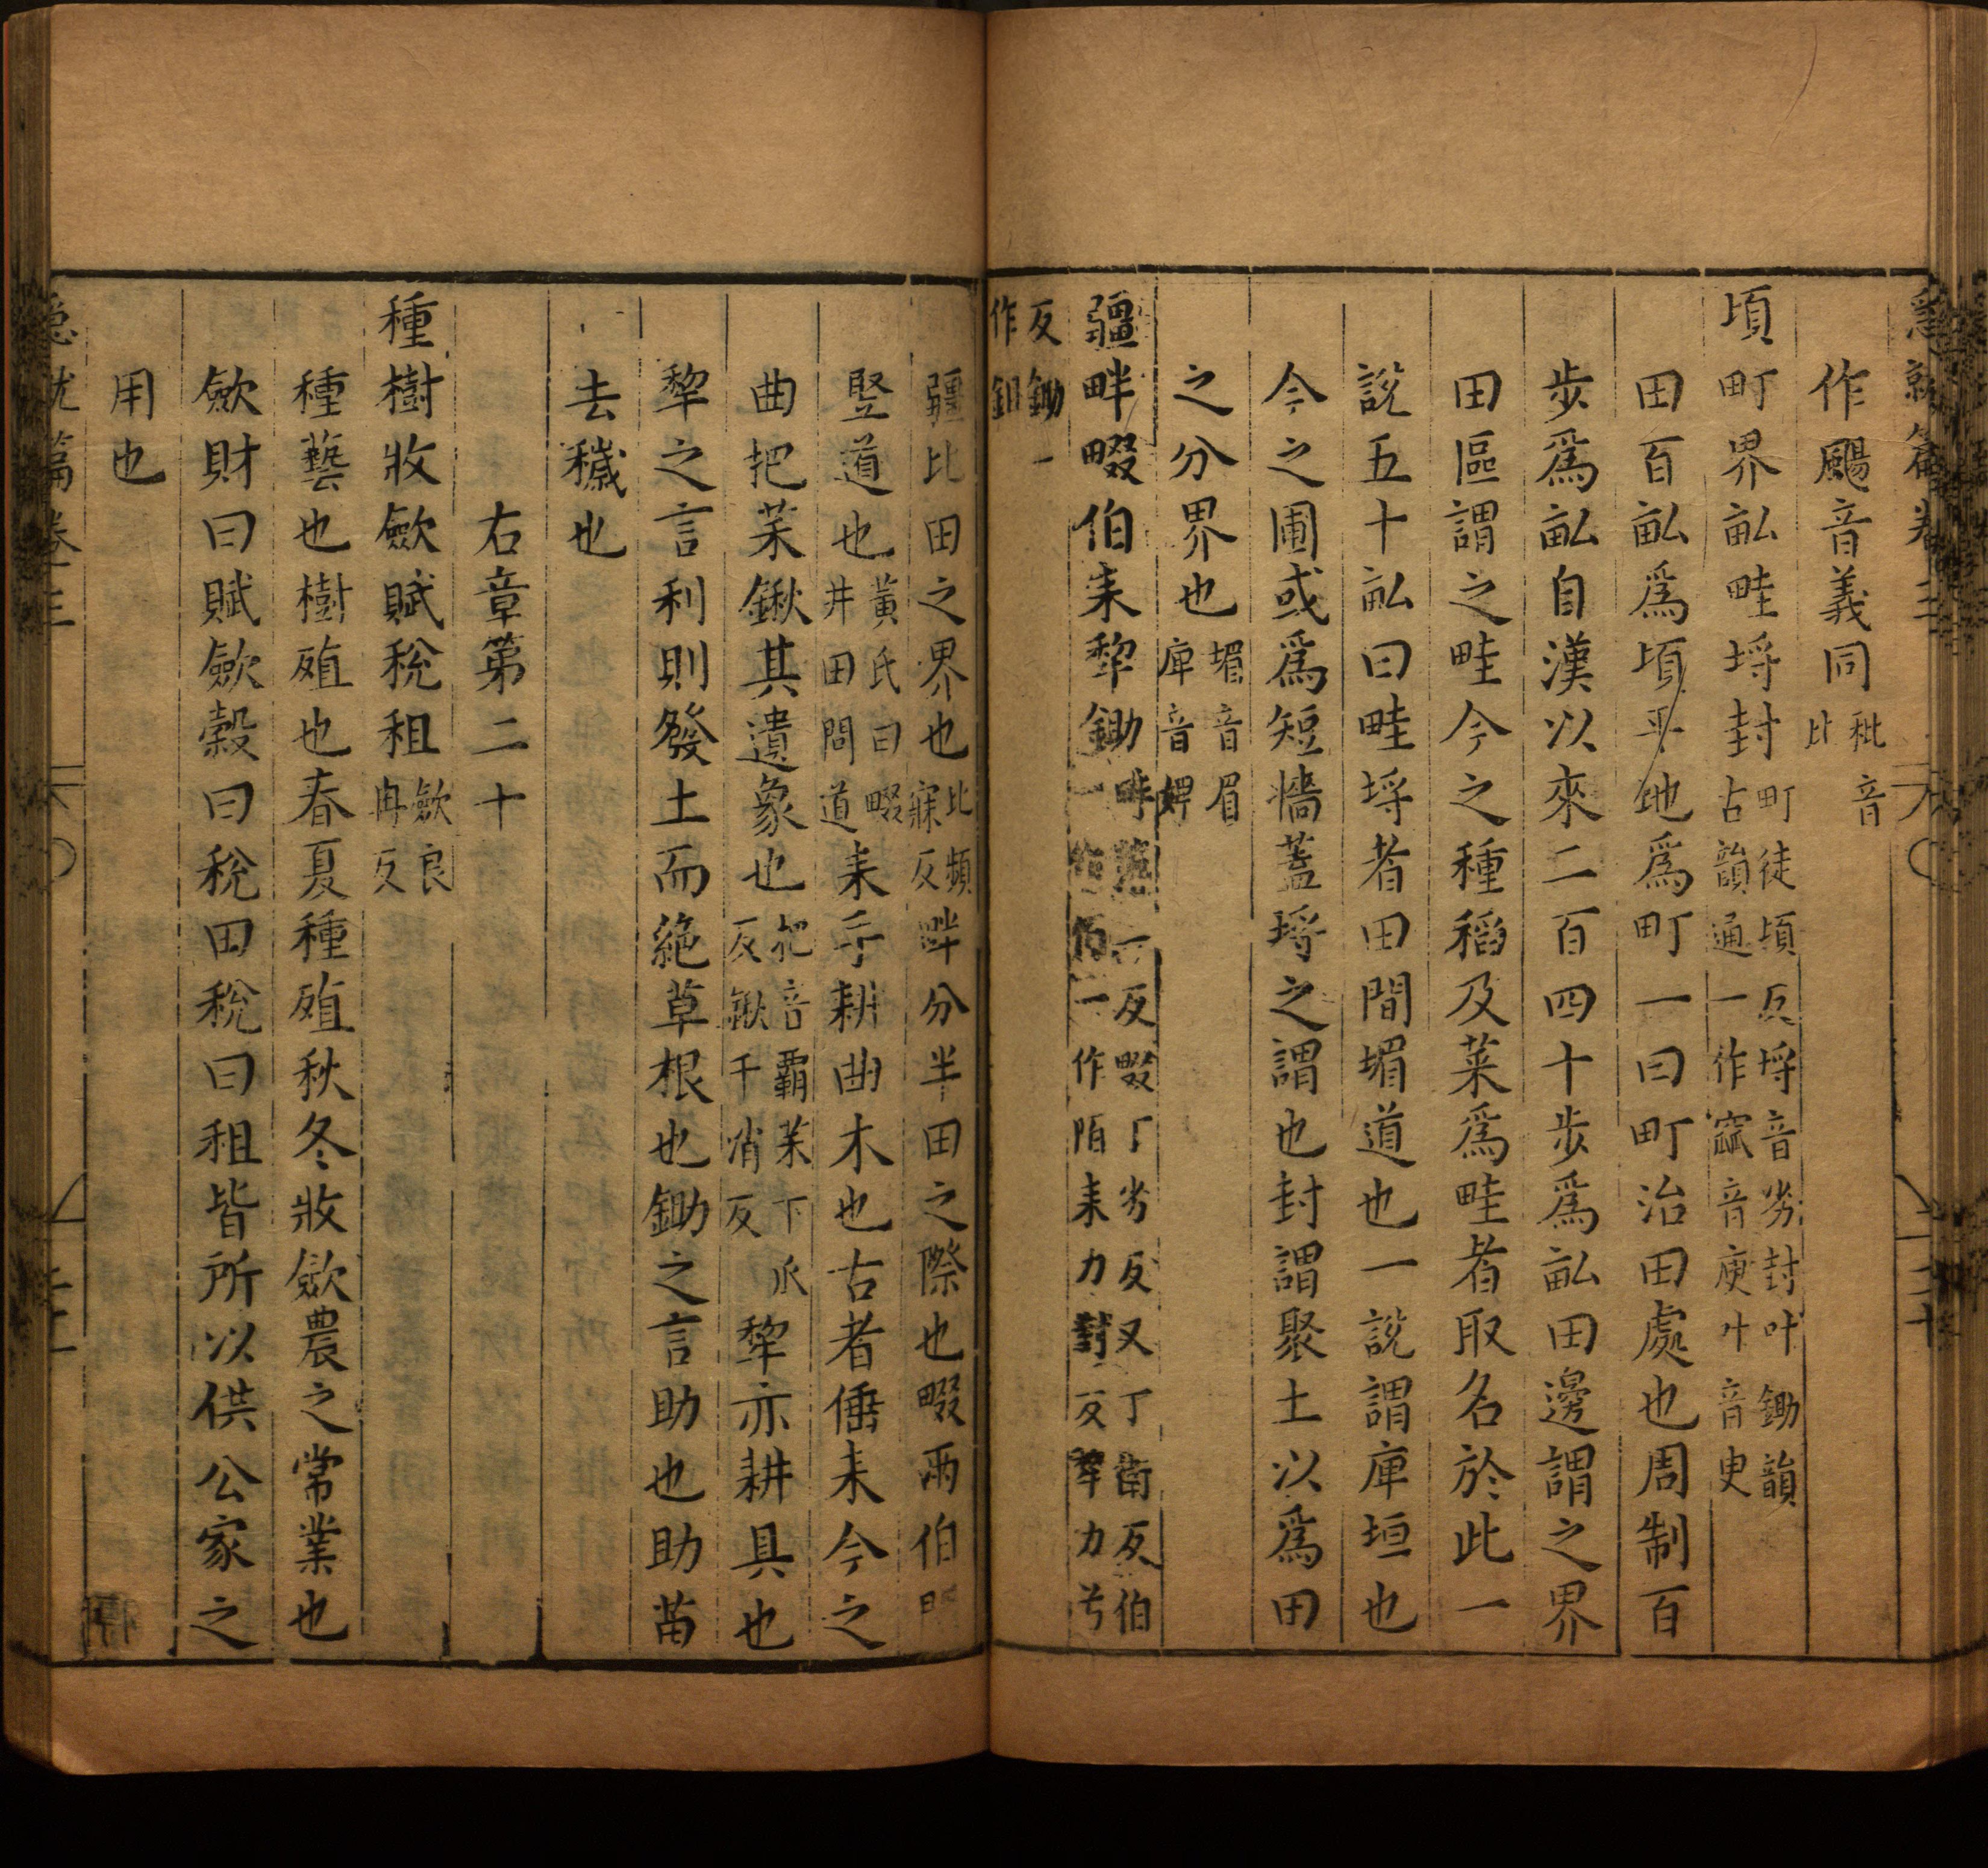 急就篇卷三
作颺音義同秕音比
頃町界畆畦埒封町徒頃反埒音劣封叶鋤韻古韻通一作㽁音庚叶音更
田百畆爲頃平地爲町一曰町治田處也周制百
步爲畆自漢以來二百四十步爲畆田邊謂之界
田區謂之畦今之種稻及菜爲畦者取名於此一
說五十畆曰畦埒者田間堳道也一說謂庳垣也
今之圃或爲短牆蓋埒之謂也封謂聚土以爲田
之分界也堳音眉庳音婢
疆畔畷伯耒犂鋤反畷丁劣反又丁衛反伯一作陌耒力對反犂力兮
反鋤一作鉏
疆比田之界也比頻寐反畔分半田之際也畷兩伯
竪道也黃氏曰畷井田間道耒手耕曲木也古者倕耒今之
曲把茉鍬其遺象也把音霸茉下瓜反鍬千消反犂亦耕具也
犂之言利則發土而絶草根也鋤之言助也助苗
去穢也
右章第二十
種樹收斂賦稅租斂良冉反
種藝也樹殖也春夏種殖秋冬收斂農之常業也
斂財曰賦斂穀曰稅田稅曰租皆所以供公家之
用也
急就篇卷三